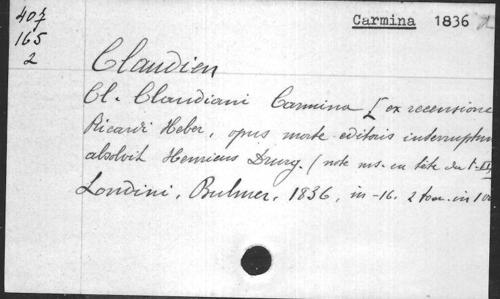 Carmina 1836
407
165
2
Claudien
Cl. Claudiani Carmina [ex recensione
Ricardi Heber, opus morte editoris interruptum
absolvit Henricus Drury. (note ms. en tête du t.
Londini, Bulmer, 1836, in-16. 2 tom. in 1